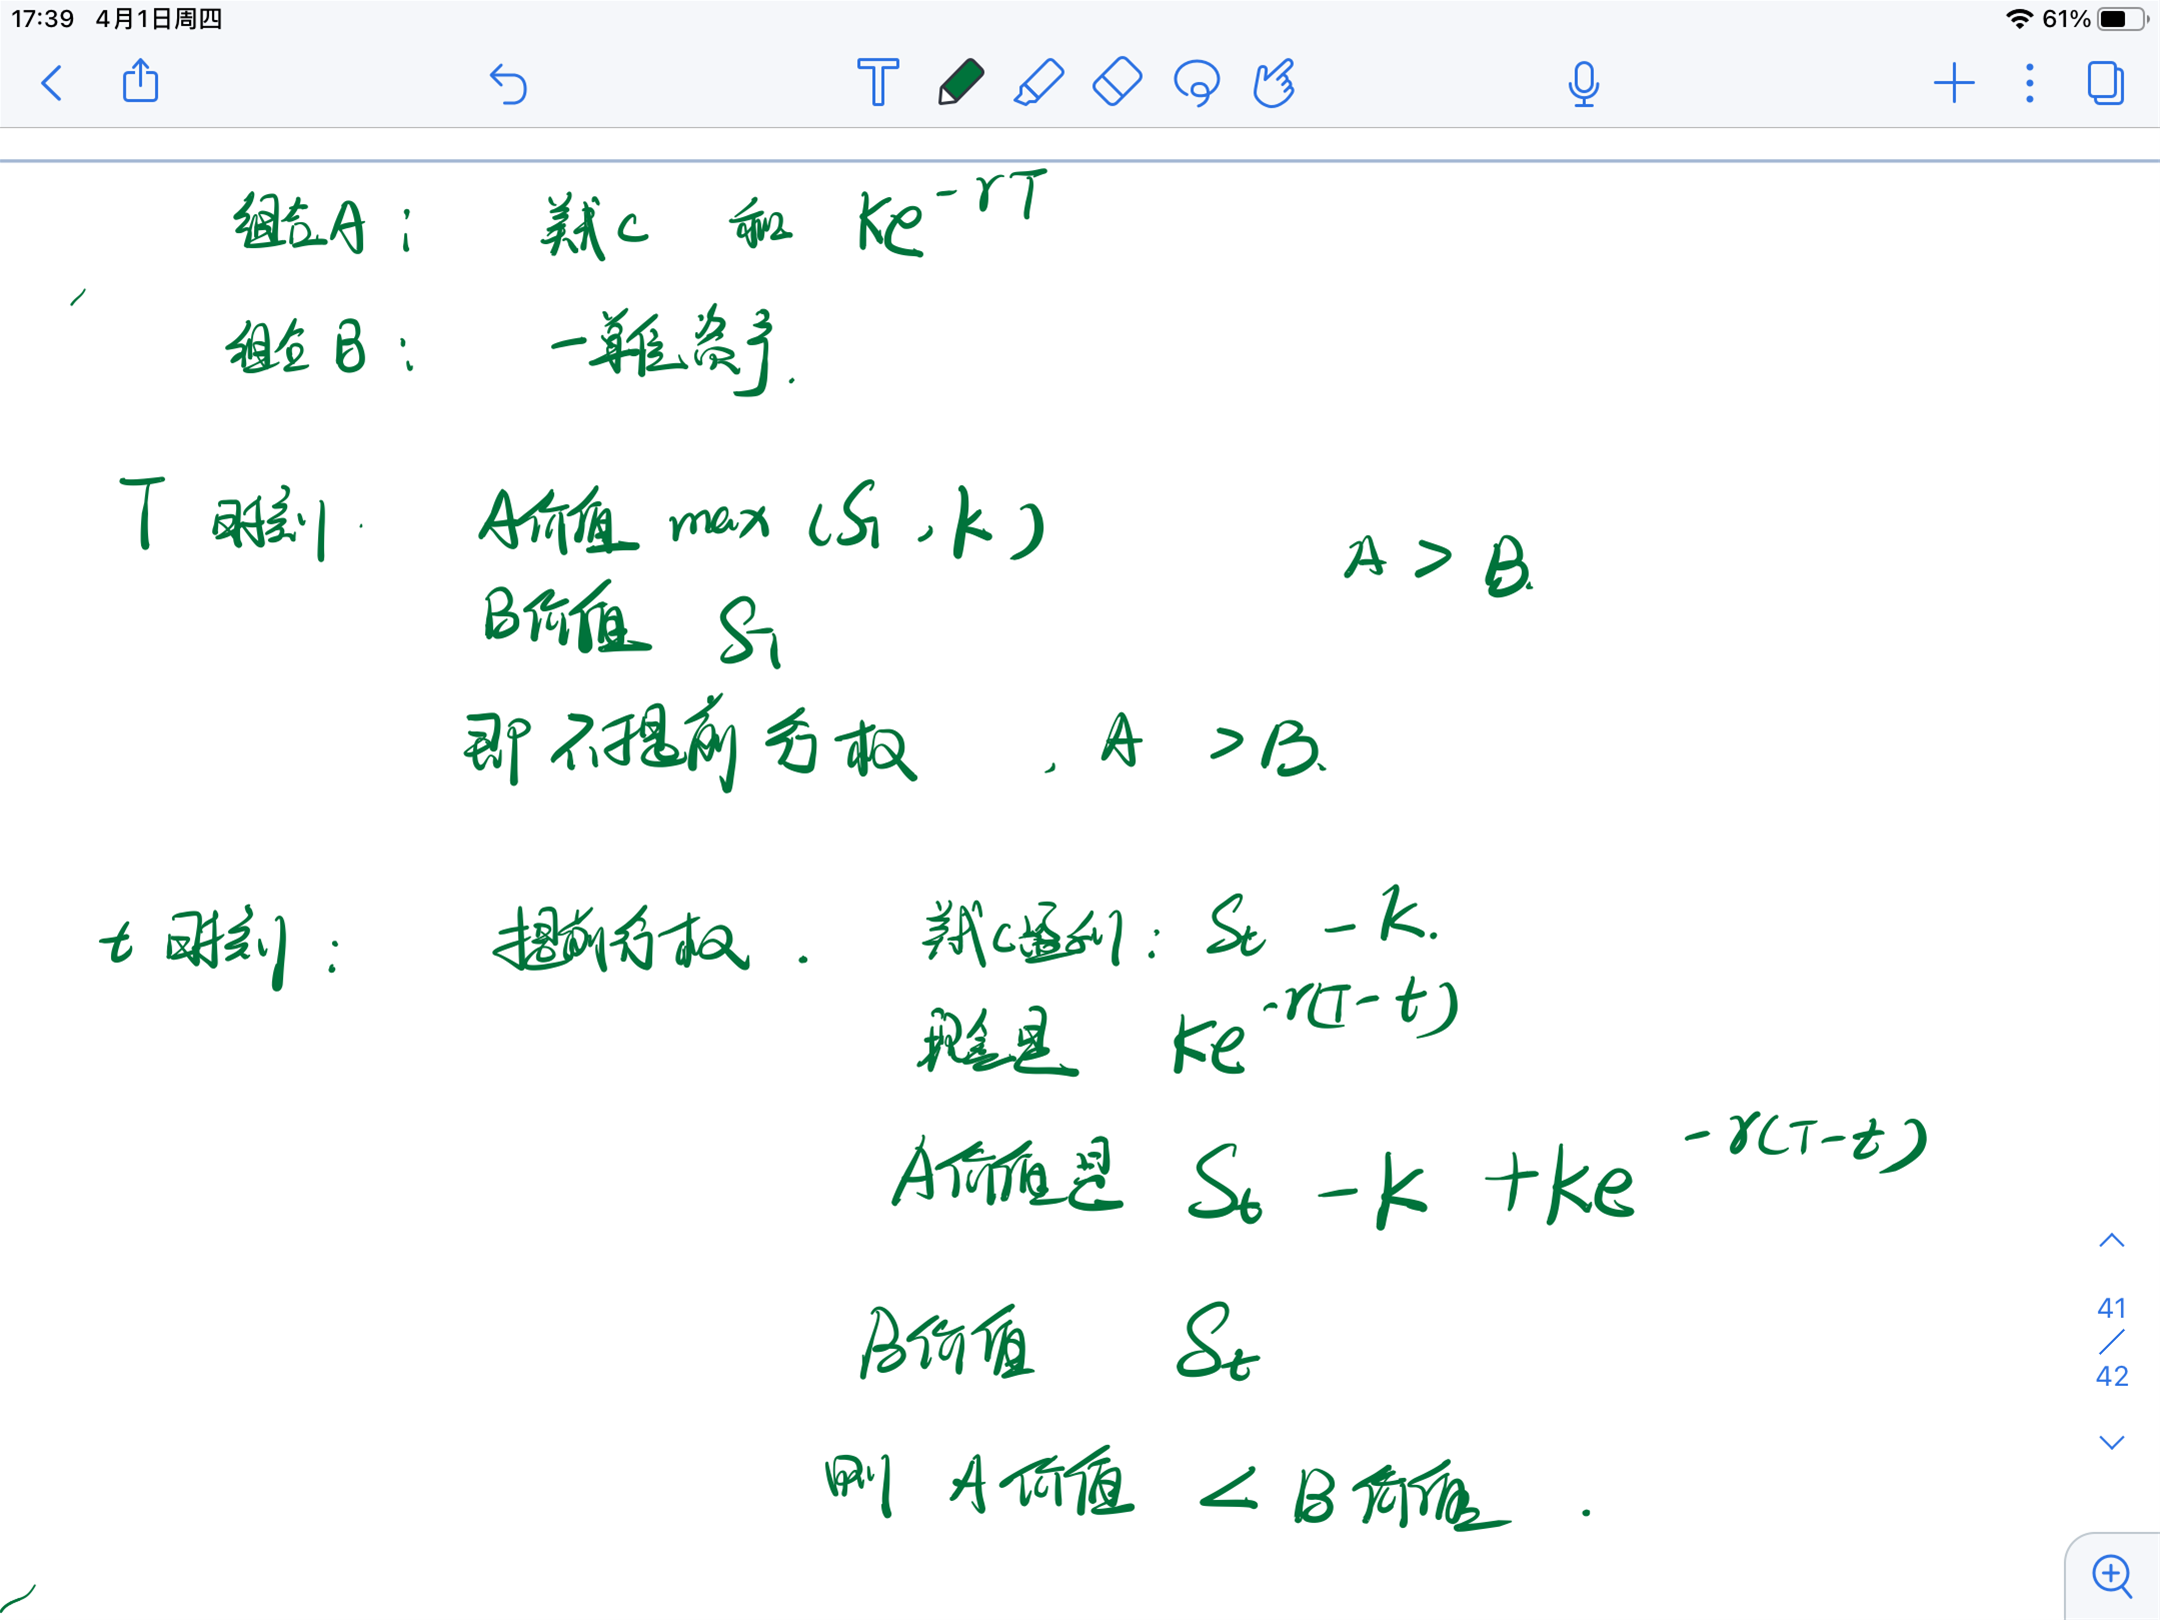 17:39 4月1日周四 61%
组合A: 美式c 和 Ke^{-rT}
组合B: 一单位资产.
T时刻. A价值 max (S_T, k) A > B.
B价值 S_T
即不提前行权, A > B.
t时刻: 提前行权. 美式c盈利: S_t - k.
现金是 Ke^{-r(T-t)}
A价值是 S_t - K + Ke^{-r(T-t)}
B价值 S_t
则 A价值 < B价值.
41
/
42